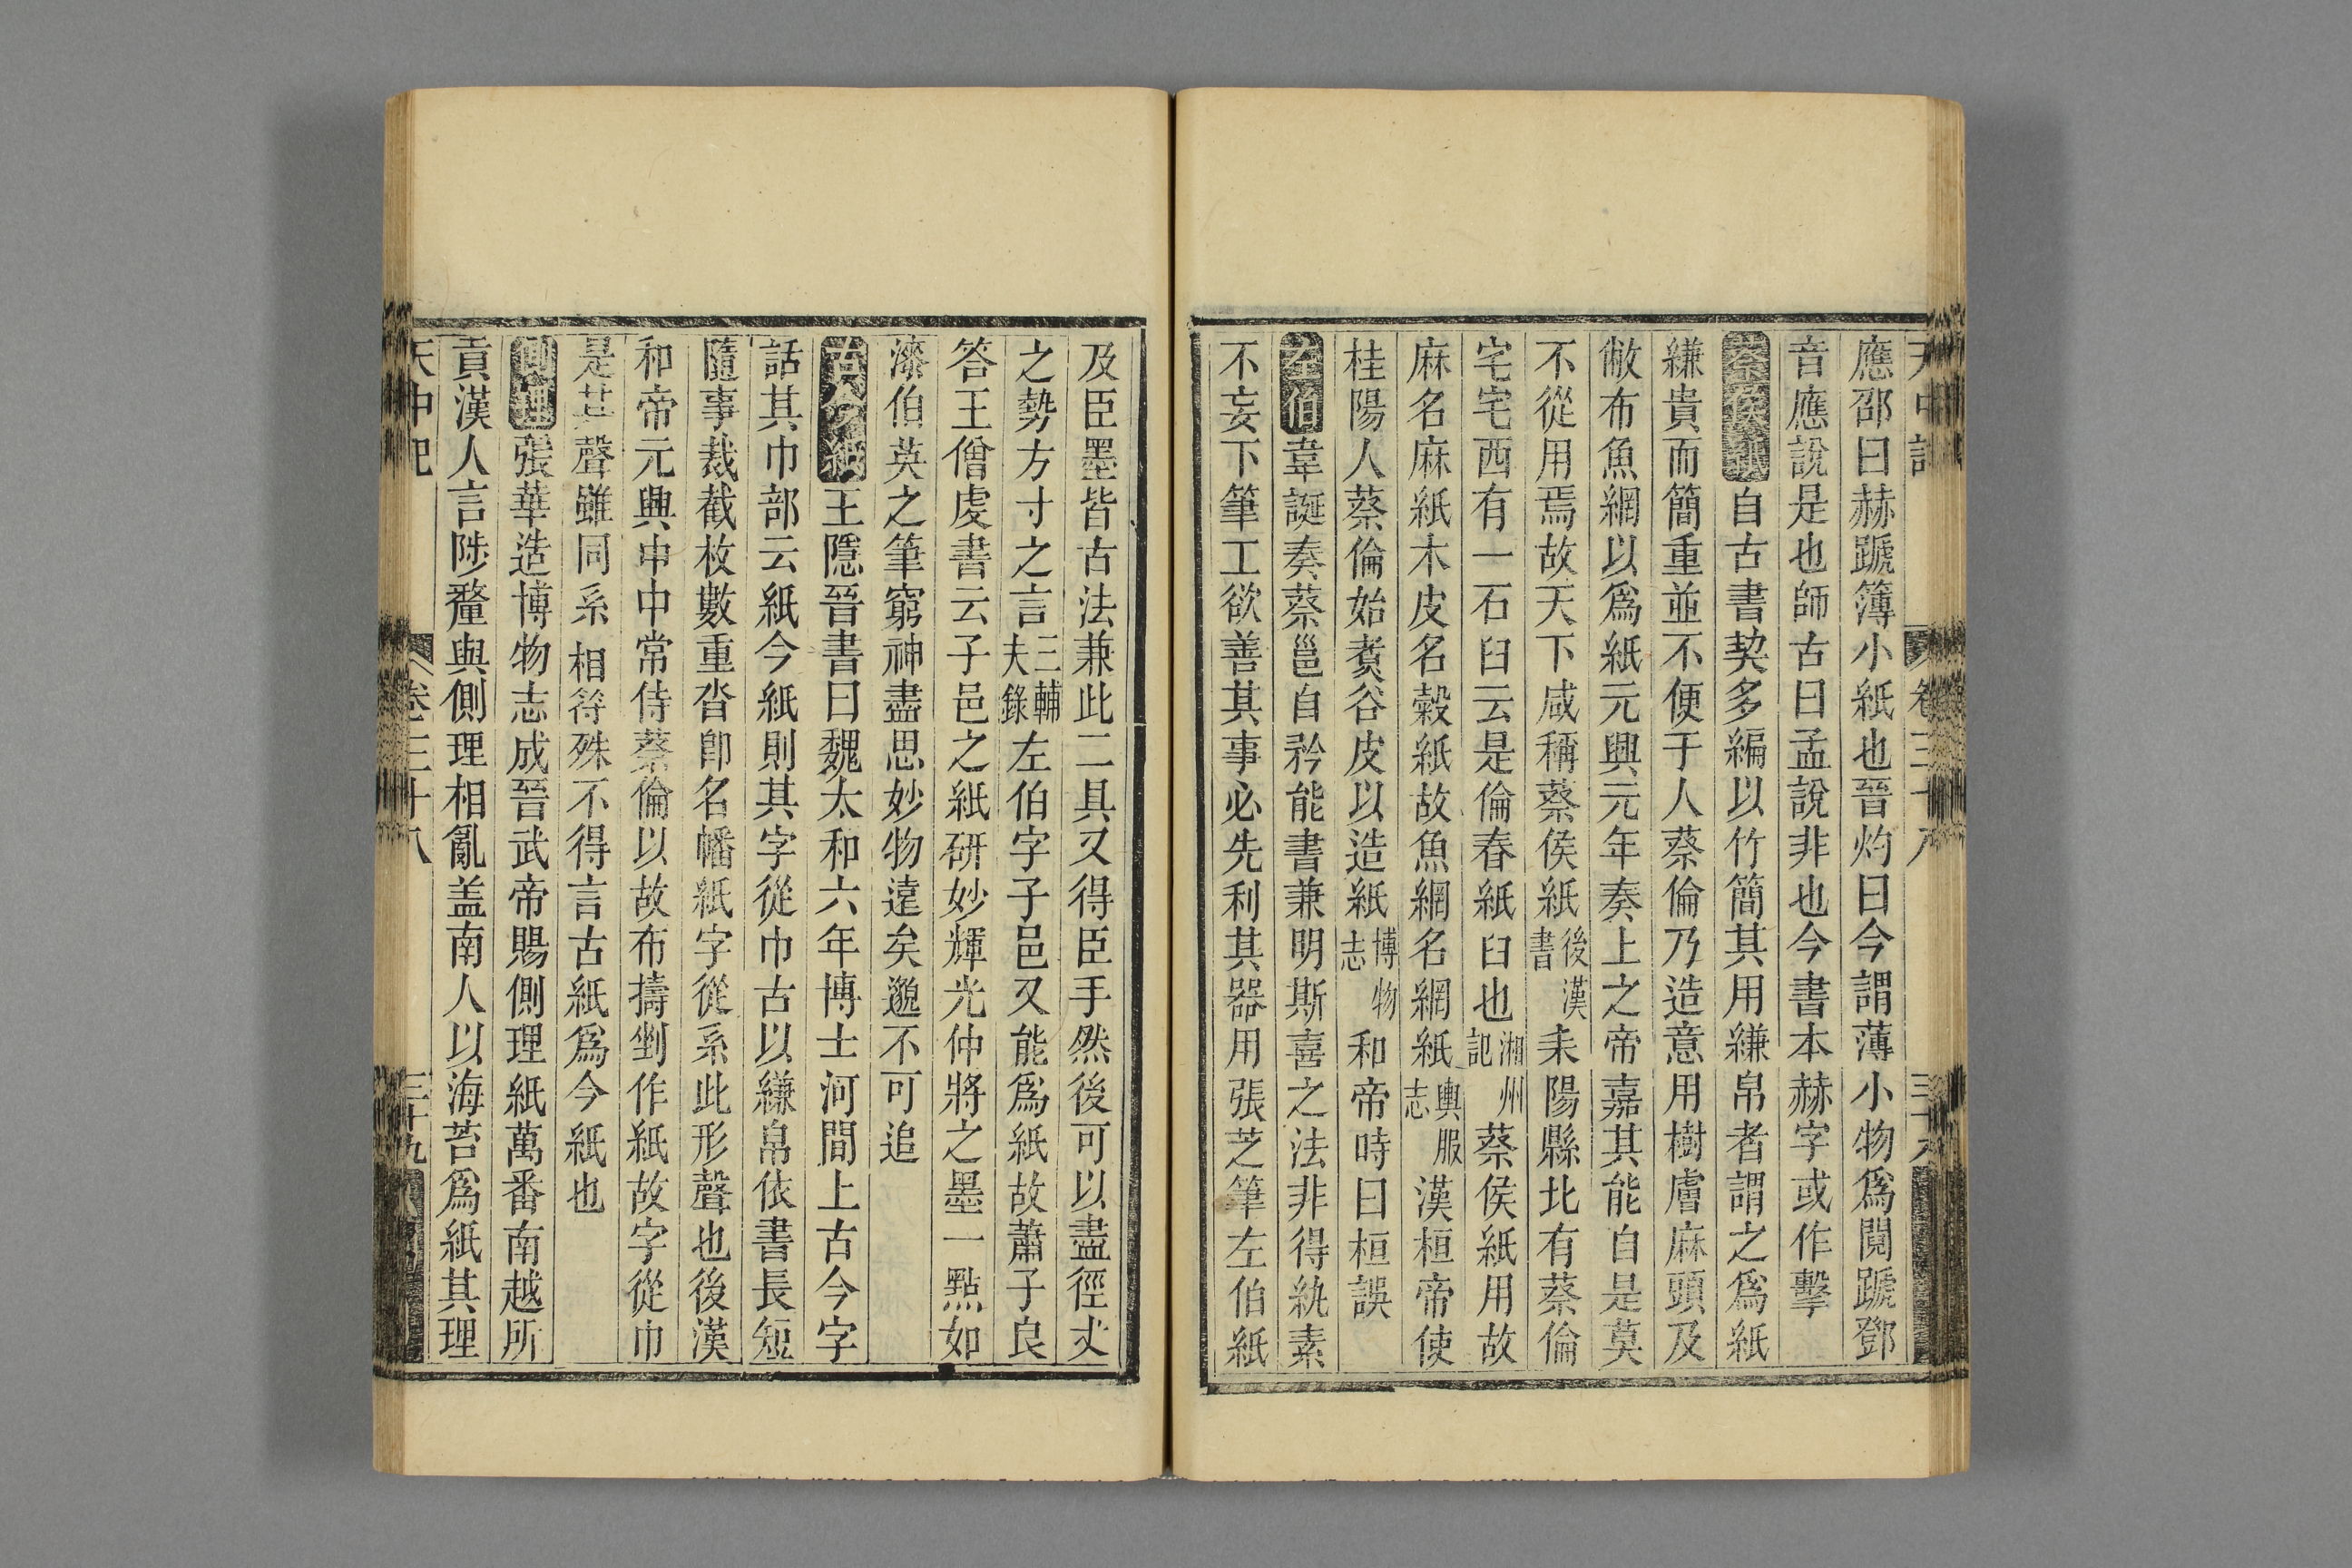 應邵曰赫蹏簿小紙也晉灼曰今謂薄小物爲鬩蹏鄧
音應說是也師古曰孟說非也今書本赫字或作擊
蔡侯紙自古書契多編以竹簡其用縑帛者謂之爲紙
縑貴而簡重並不便于人蔡倫乃造意用樹膚麻頭及
敝布魚網以爲紙元興元年奏上之帝嘉其能自是莫
不從用焉故天下咸稱蔡侯紙後漢書耒陽縣北有蔡倫
宅宅西有一石臼云是倫春紙臼也湘州記蔡侯紙用故
麻名麻紙木皮名穀紙故魚網名網紙輿服志漢桓帝使
桂陽人蔡倫始煑谷皮以造紙博物志和帝時曰桓誤
左伯韋誕奏蔡邕自矜能書兼明斯喜之法非得紈素
不妄下筆工欲善其事必先利其器用張芝筆左伯紙
及臣墨皆古法兼此二具又得臣手然後可以盡徑丈
之勢方寸之言三輔夫錄左伯字子邑又能爲紙故蕭子良
答王僧虔書云子邑之紙研妙輝光仲將之墨一點如
漆伯英之筆窮神盡思妙物遠矣邈不可追
古今紙王隱晉書曰魏太和六年博士河間上古今字
詁其巾部云紙今紙則其字從巾古以縑帛依書長短
隨事裁截枚數重沓卽名幡紙字從系此形聲也後漢
和帝元興申中常侍蔡倫以故布擣剉作紙故字從巾
是其聲雖同系相符殊不得言古紙爲今紙也
側理張華造博物志成晉武帝賜側理紙萬番南越所
貢漢人言陟釐與側理相亂盖南人以海苔爲紙其理
天中記 卷三十八 三十九